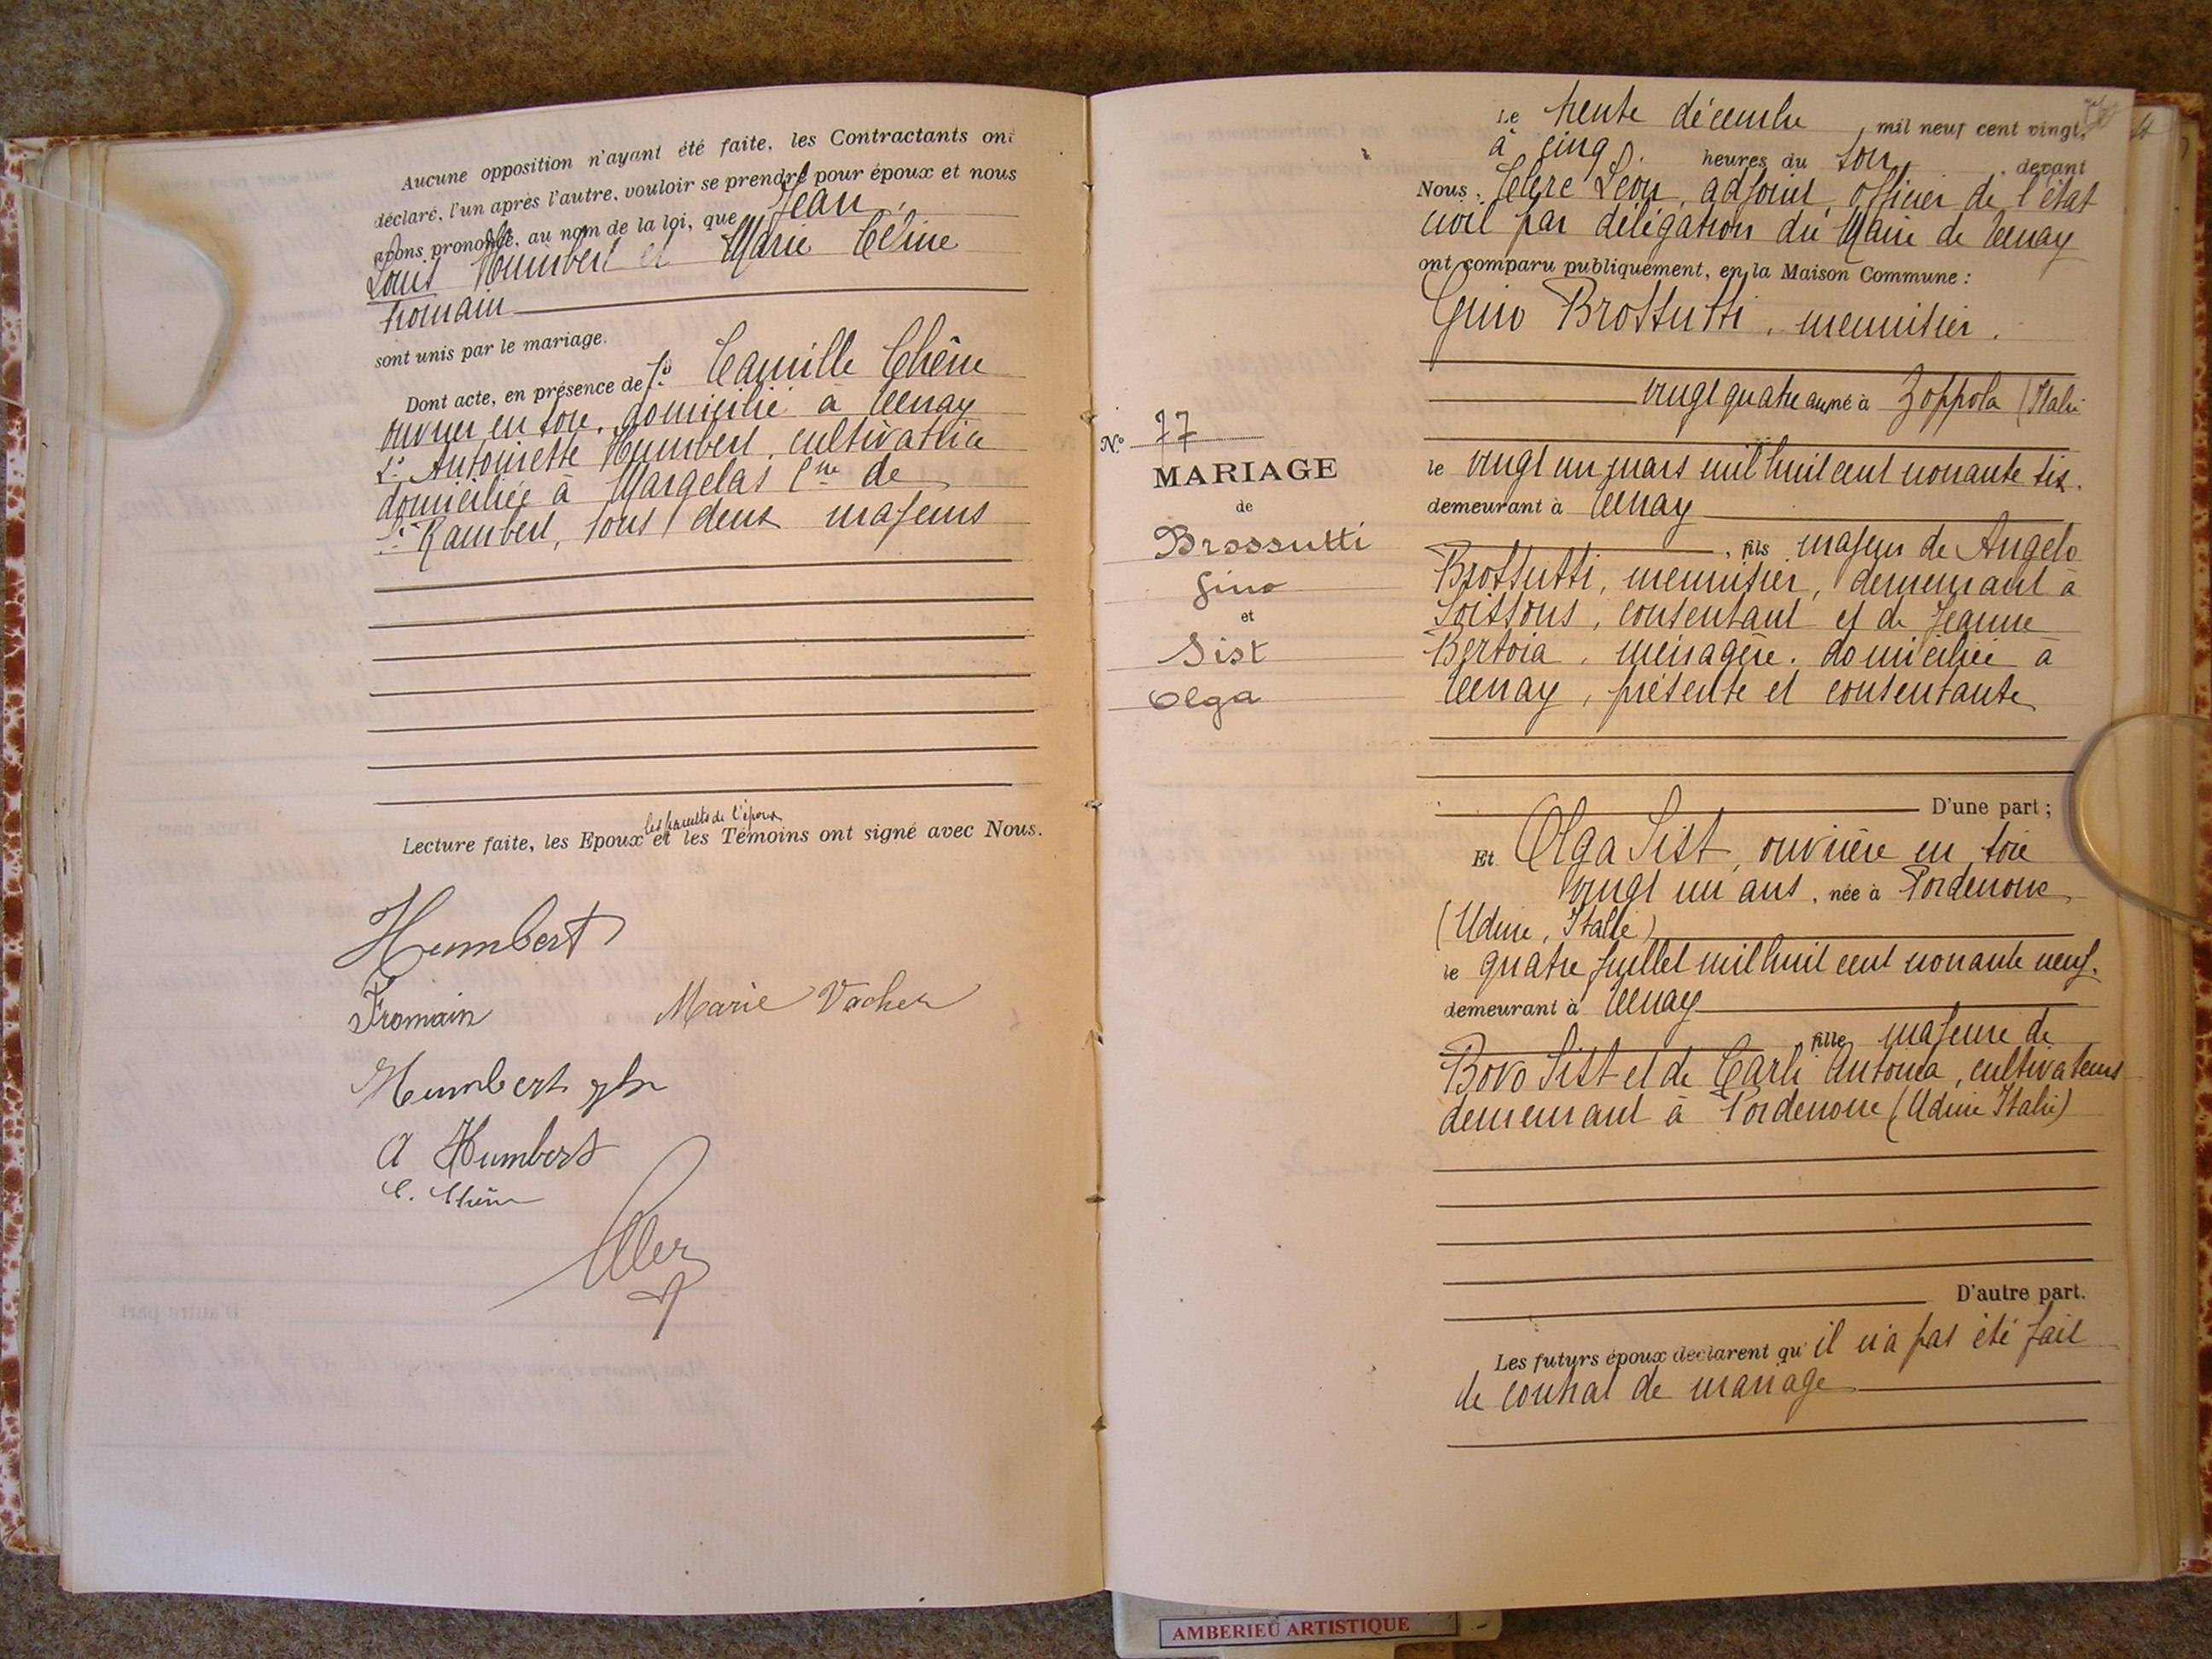 Aucune opposition n'ayant été faite, les Contractants ont
déclaré, l'un après l'autre, vouloir se prendre pour époux et nous
avons prononcé, au nom de la loi, que Jean,
Louis Humbert et Marie Céline
Fromain
sont unis par le mariage.
Dont acte, en présence de 1º Camille Chêne
ouvrier en soie, domicilié à Tenay
2º Antoinette Humbert, cultivatrice
domiciliée à Margelas Cne de
St Rambert, tous deux majeurs
les parents de l'époux
Lecture faite, les Epoux et les Témoins ont signé avec Nous.
Humbert
Fromain Marie Vacher
Humbert
A Humbert
C. Chêne
Le trente décembre, mil neuf cent vingt,
à cinq heures du soir, devant
Nous, Léon, adjoint, officier de l'état
civil par délégation du Maire de Tenay
ont comparu publiquement, en la Maison Commune :
Gino Brossutti, menuisier.
vingt quatre ans, né à Zoppola (Italie
Nº 77
MARIAGE
de
Brossutti
Gino
et
Sist
Olga
le vingt un mars mil huit cent nonante six.
demeurant à Tenay
, fils majeur de Angelo
Brossutti, menuisier, demeurant à
Soissons, consentant et de Jeanne
Bertoia, ménagère, domiciliée à
Tenay, présente et consentante
D'une part ;
Et Olga Sist, ouvrière en soie
vingt un ans, née à Pordenone
(Udine, Italie)
le quatre juillet mil huit cent nonante neuf.
demeurant à Tenay
, fille majeure de
Bovo Sist et de Carli Antonia, cultivateurs
demeurant à Pordenone (Udine Italie)
D'autre part.
Les futurs époux déclarent qu'il n'a pas été fait
de contrat de mariage
AMBERIEU ARTISTIQUE